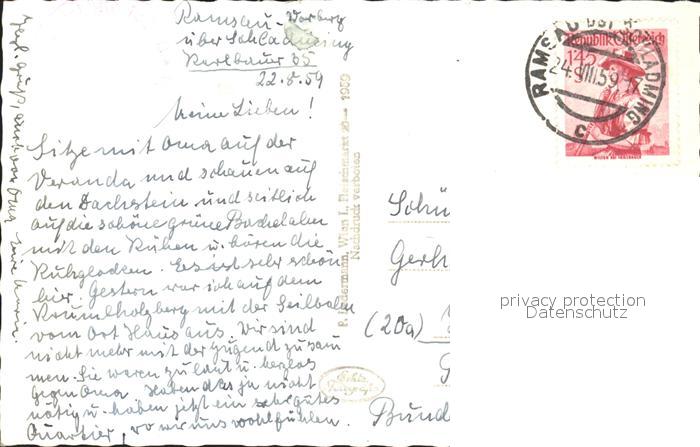 Ramsau - Vorberg
über Schladming
Karlbauer 35
22.8.59
Meine Lieben!
Sitze mit Oma auf der
Veranda und schauen auf
den Dachstein und seitlich
auf die schöne grüne Bachelalm
mit den Kühen u. hören die
Kuhglocken. Es ist sehr schön
hier. Gestern war ich auf dem
Krumholzberg mit der Seilbahn
vom Ort Haus aus. Wir sind
nicht mehr mit der Jugend zusam
men. Sie waren zu laut u.
gegen Oma. Haben das ja nicht
nötig u. haben jetzt ein sehr gutes
Quartier, wo wir uns wohlfühlen.
Gruß, auch von Oma
P. Ledermann, Wien I., Fleischmarkt 20 — 1959
Nachdruck verboten
Echte
Republik Österreich
1.45
S
RAMSAU
SCHLADMING
24.VIII.59-17
c
Schü
Gerh
(20a)
G
Bund
privacy protection
Datenschutz